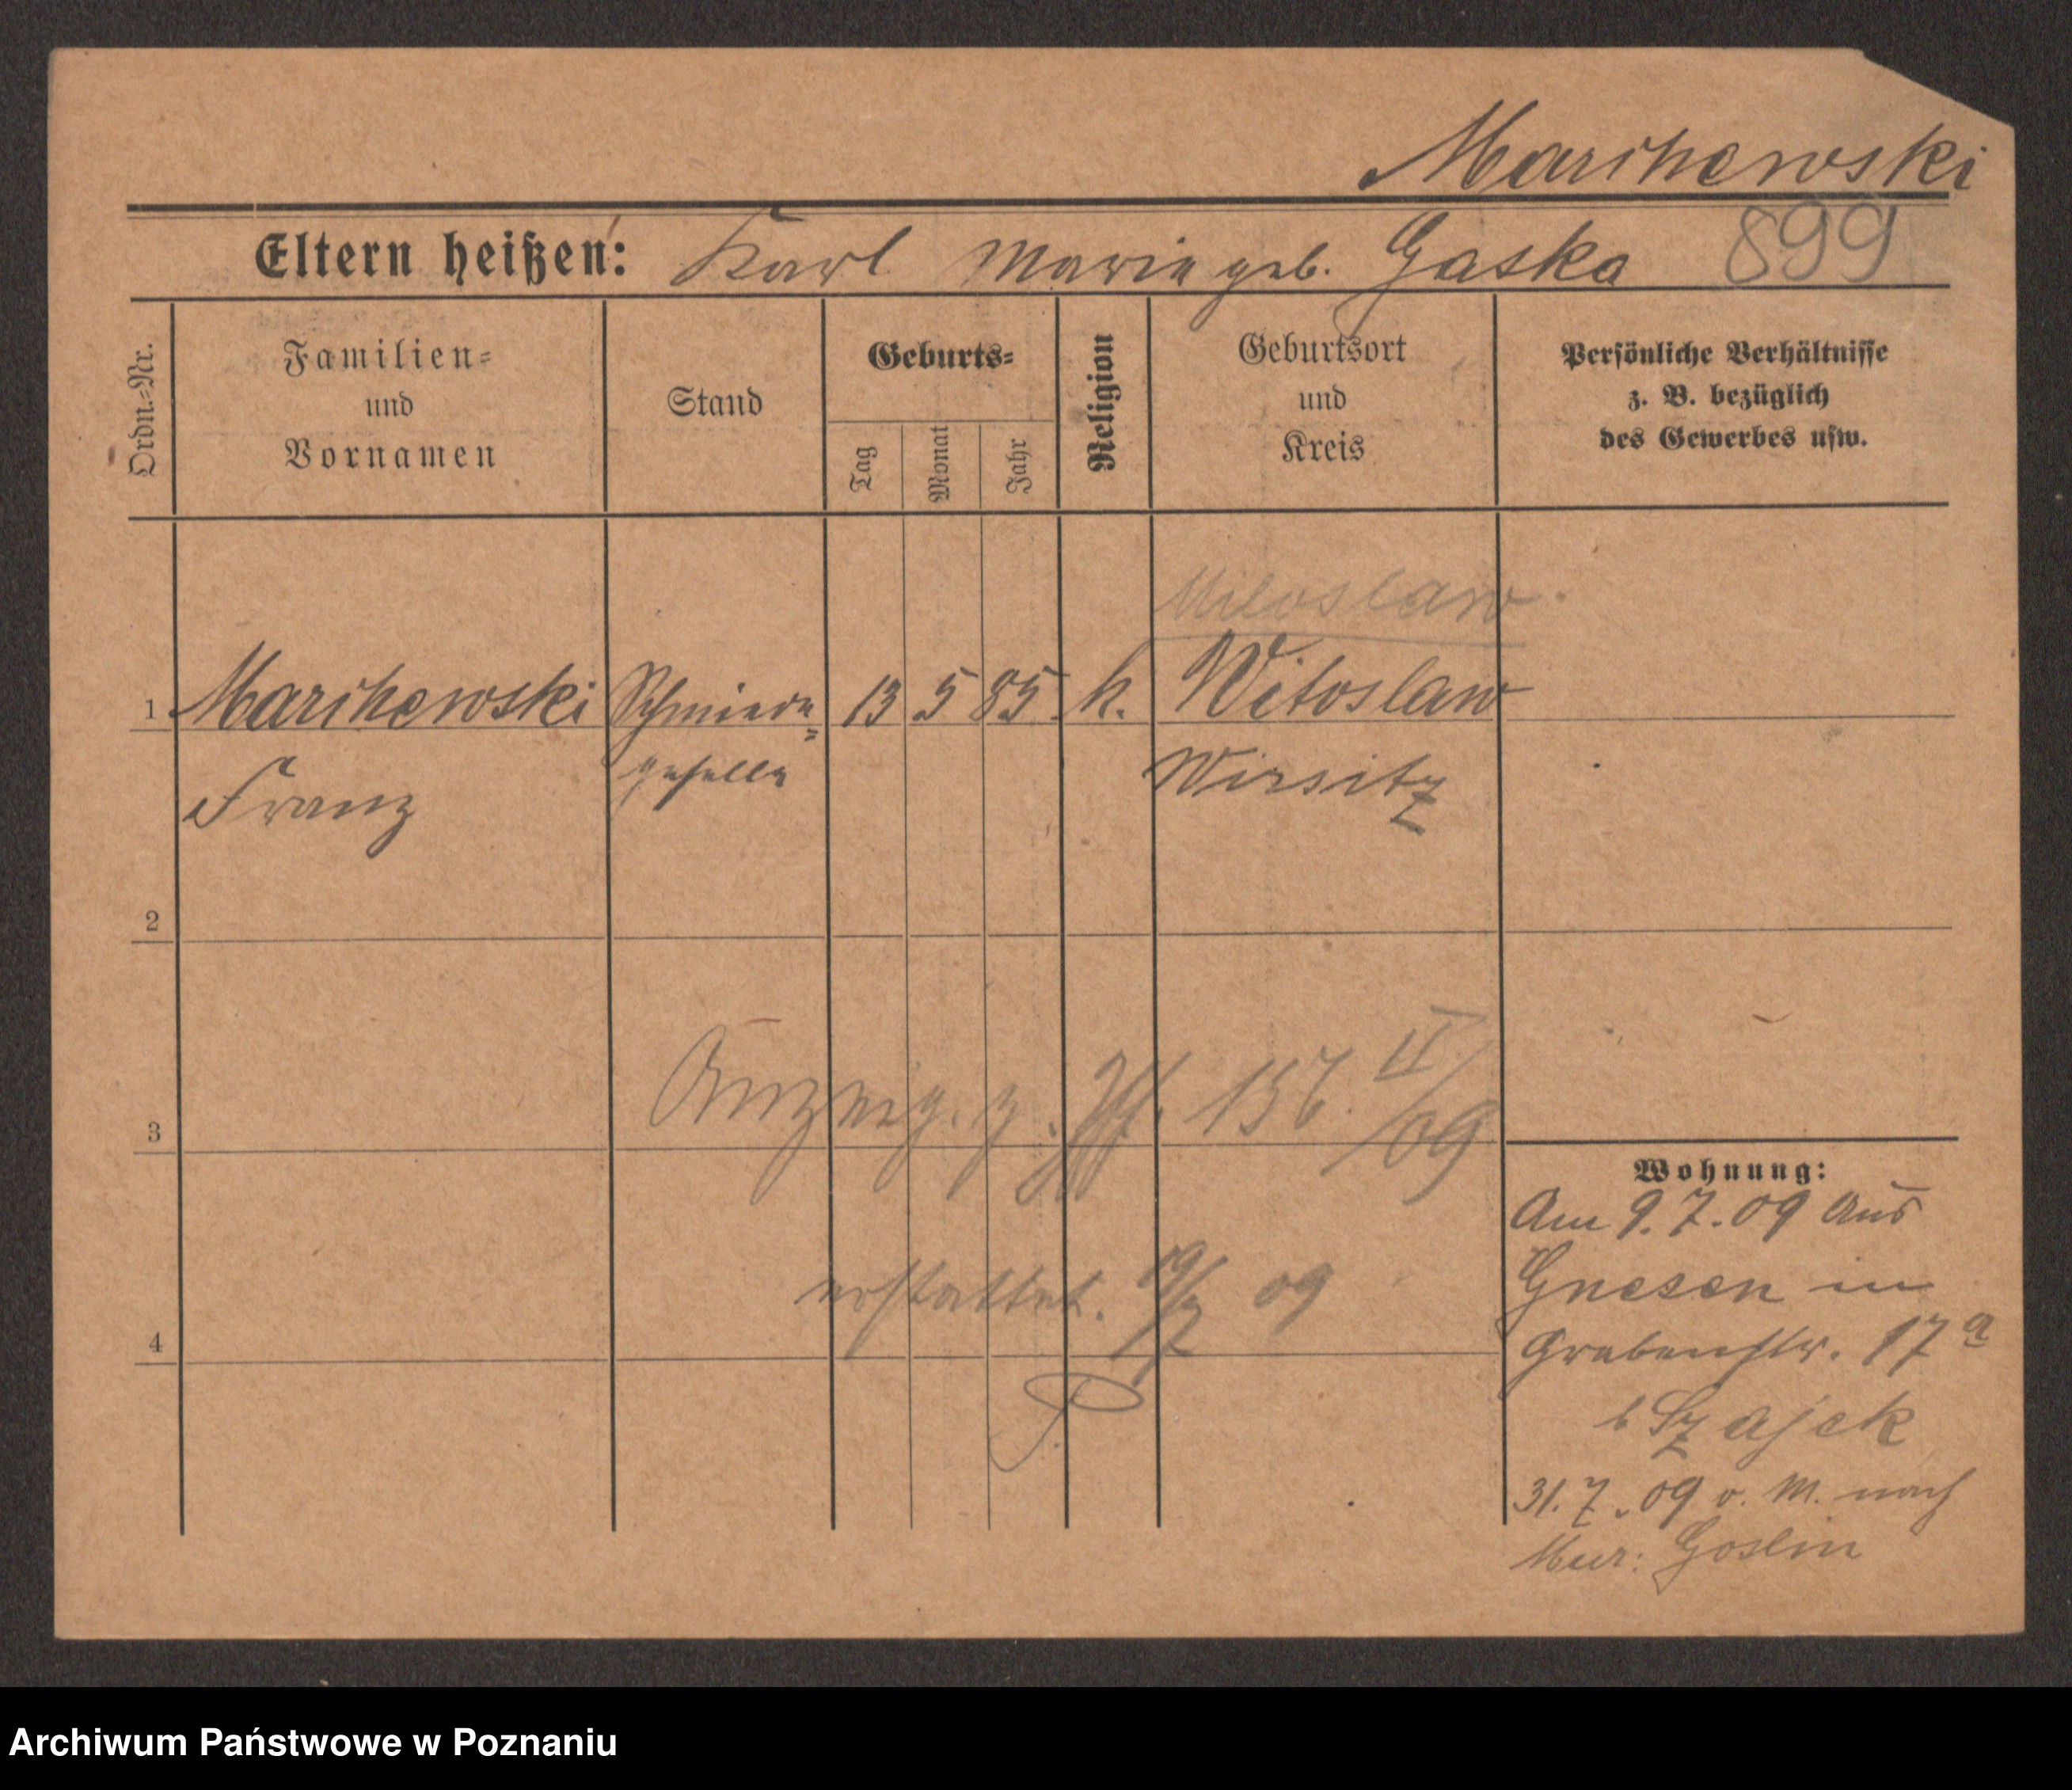 Marihewski
899
Eltern heißen: Karl Marie geb. Gaska
Ordn.-Nr.
Familien-
und
Vornamen
Stand
Geburts-
Tag
Monat
Jahr
Religion
Geburtsort
und
Kreis
Persönliche Verhältnisse
z. B. bezüglich
des Gewerbes usw.
Miloslaw
1 Marihewski Schmiede= 13 5 85 k. Witoslaw
Franz geselle Wirsitz
2
3 Anzeig. z. 156. II/09
4 erstattet. 19/7 09
Wohnung:
Am 9.7.09 aus
Gnesen in
Grabenstr. 17 a
b Szajek
31.7.09 v. M. nach
Mur: Goslin
Archiwum Państwowe w Poznaniu